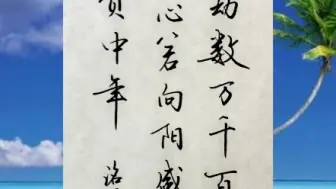 劫数万千百
心若向阳
中年